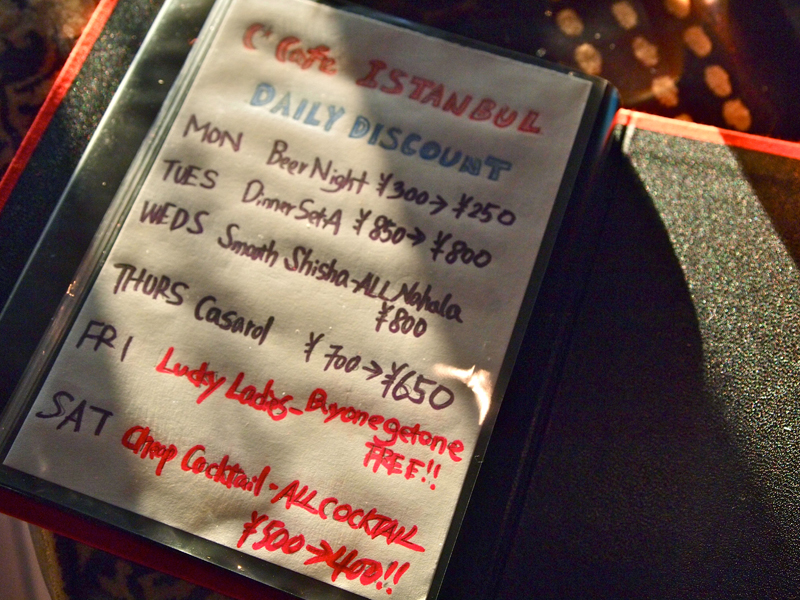 C' Cafe ISTANBUL
DAILY DISCOUNT
MON Beer Night ¥300→¥250
TUES Dinner Set A ¥850→¥800
WEDS Smooth Shisha-ALL Nahala
¥800
THURS Casarol ¥700→¥650
FRI Lucky Ladies-Buyonegetone
FREE!!
SAT Cheap Cocktail-ALL COCKTAIL
¥500→400!!